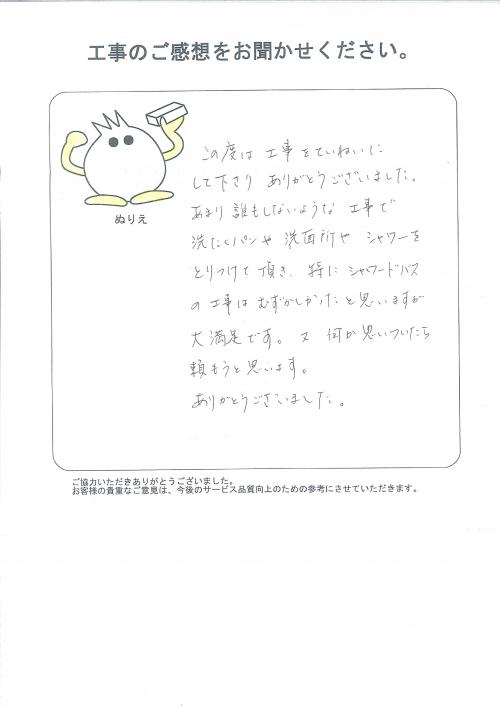 工事のご感想をお聞かせください。
ぬりえ
この度は 工事をていねいに
して下さり ありがとうございました。
あまり誰もしないような 工事で
洗たくパンや 洗面所や シャワーを
とりつけて頂き、特に シャワードバス
の工事は むずかしかったと思いますが
大満足です。又 何か思いついたら
頼もうと思います。
ありがとうございました。
ご協力いただきありがとうございました。
お客様の貴重なご意見は、今後のサービス品質向上のための参考にさせていただきます。